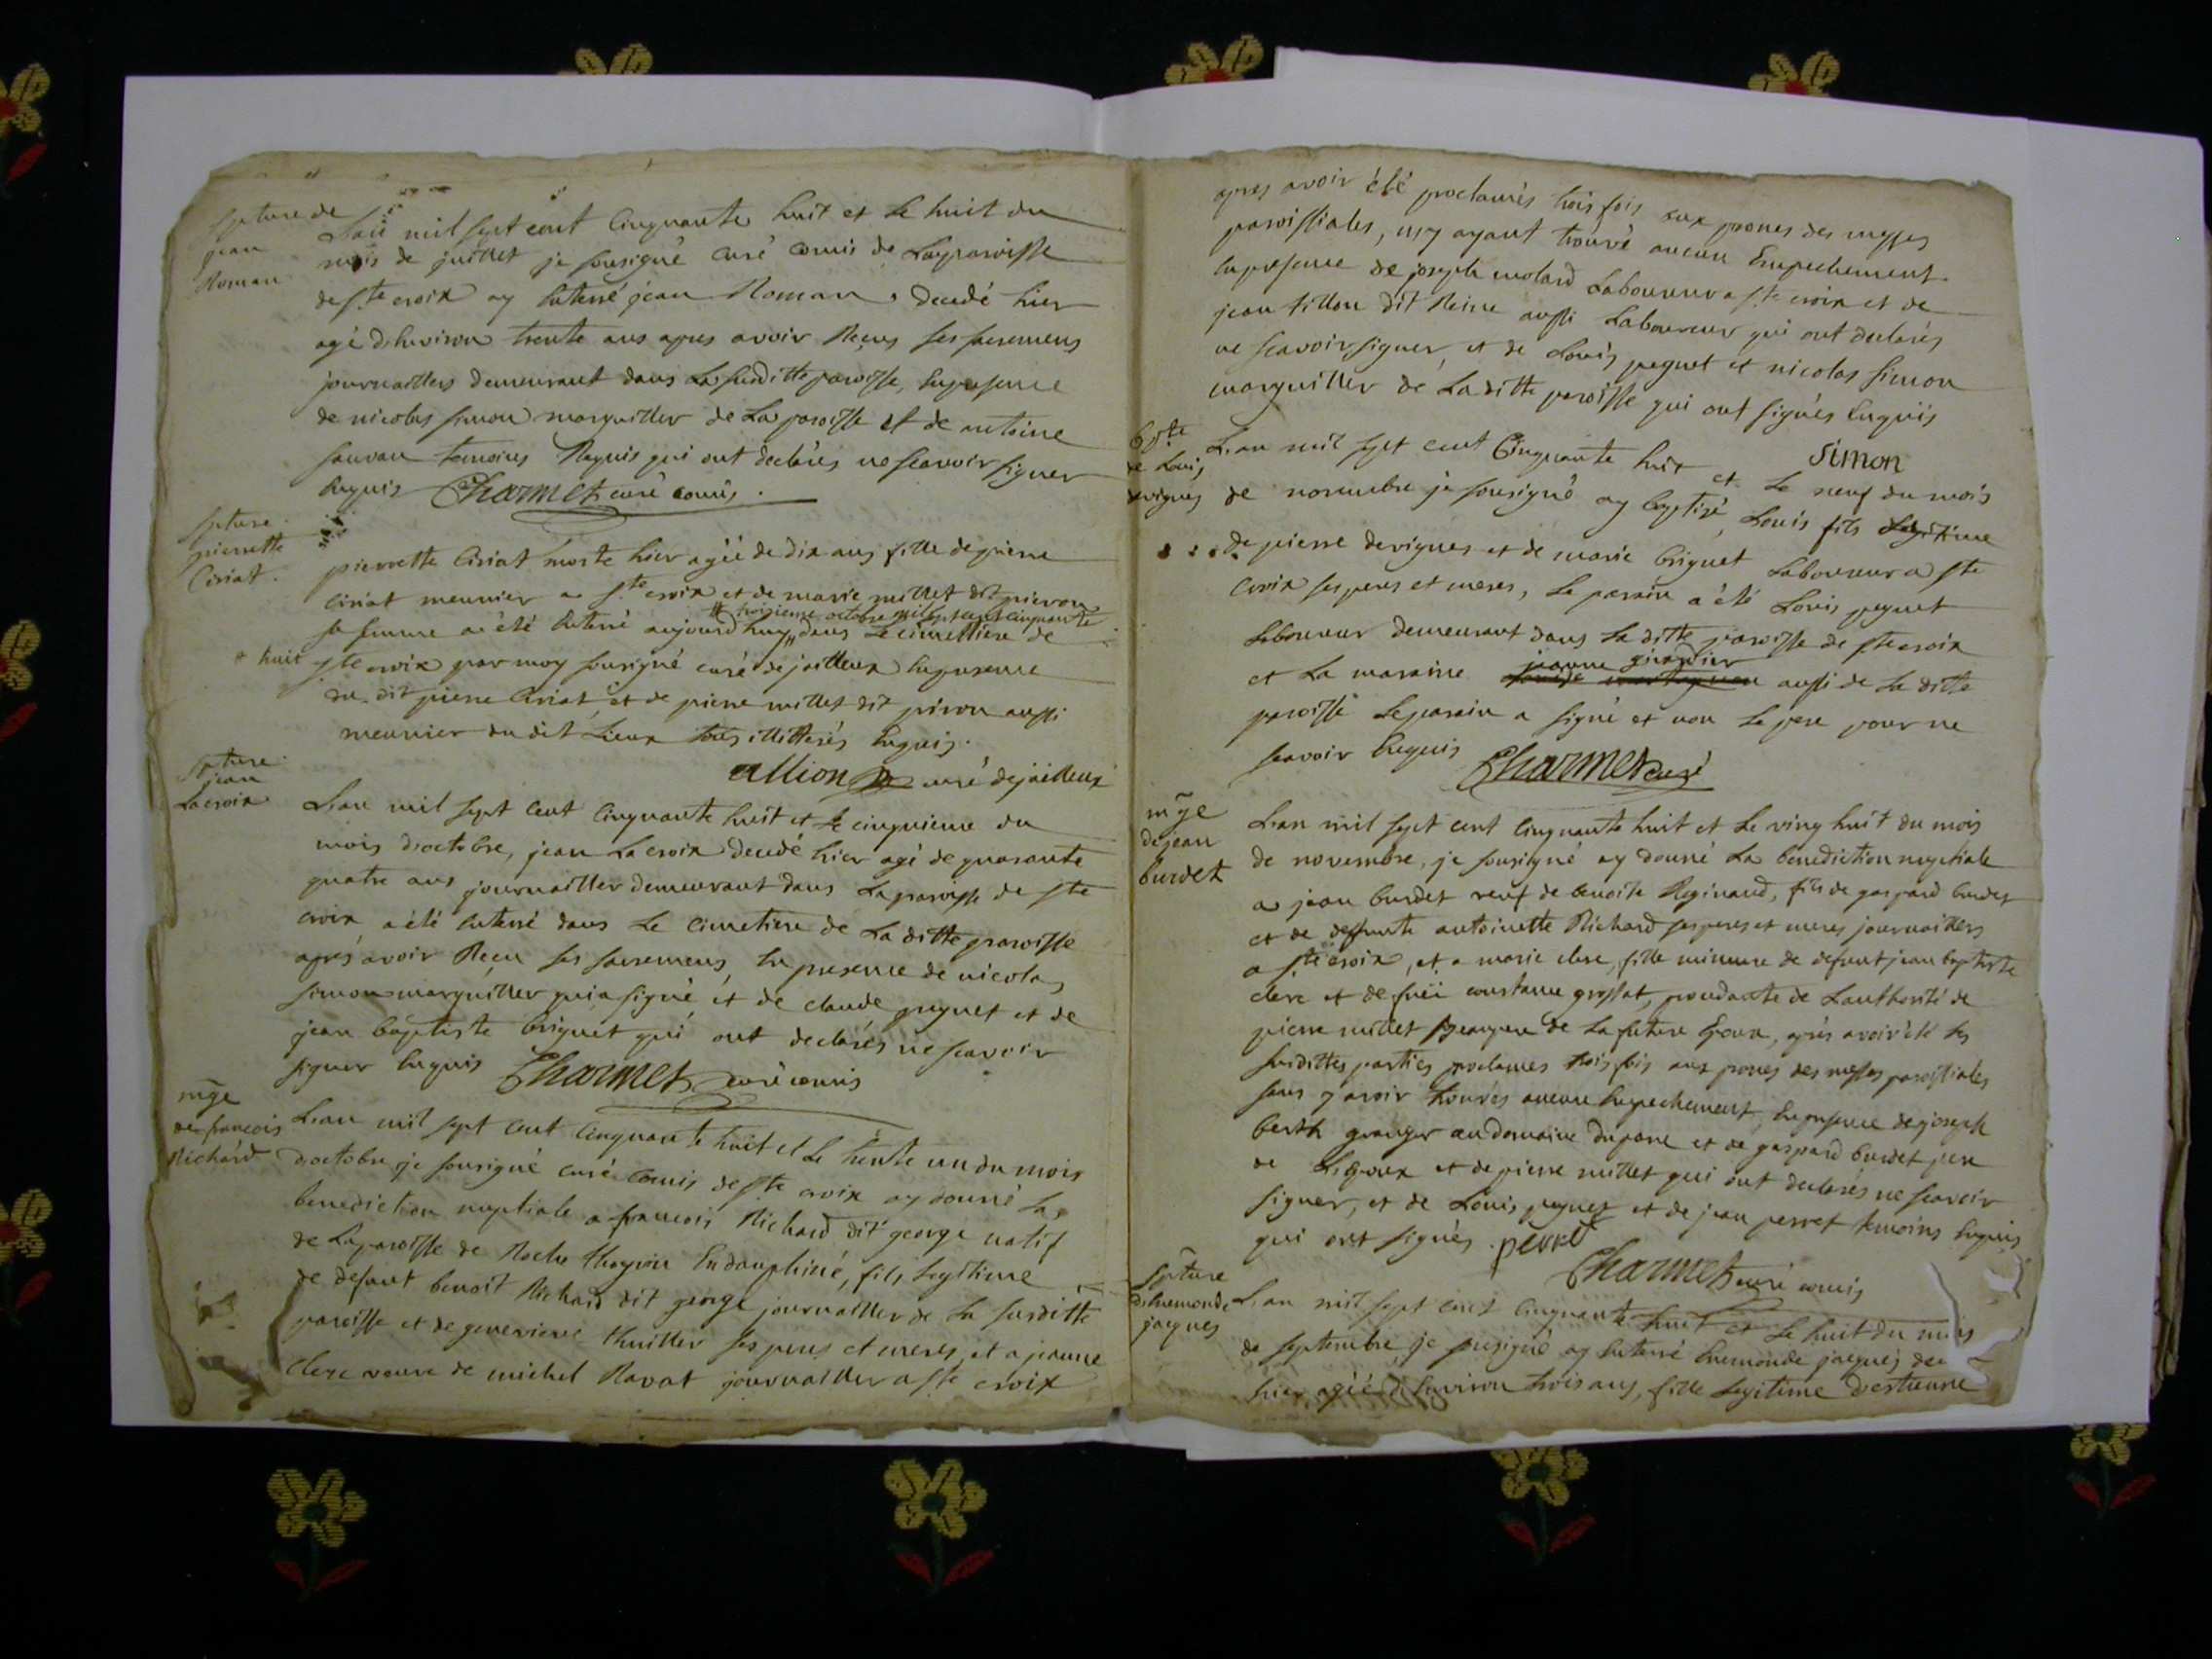 spture de
jean
Roman
L'an mil sept cent cinquante huit et le huit du
mois de juillet je sousigné curé comis de la paroisse
de ste croix ay enterré jean Roman, decedé hier
agé d'environ trente ans apres avoir Reçus ses sacremens
journaillier demeurant dans la susditte paroisse, en presence
de nicolas simon marguillier de la paroisse et de antoine
sauvan temoins Requis qui ont declarés ne scavoir signer
enquis Charmet curé comis.
spture
pierrette
Ciriat.
pierrette Ciriat morte hier agéé de dix ans fille de pierre
ciriat meunier a ste croix et de marie millet dit pirron
sa femme a été enterré aujourd'huy dans le cimettiere de
# troisieme octobre mil sept cent cinquante
# huit
ste croix par moy sousigné curé de jailleux en presence
du dit pierre Ciriat et de pierre millet dit pirron aussi
meunier du dit Lieux tous illitterés enquis.
allion curé de jailleux
spture
jean
Lacroix
L'an mil sept cent cinquante huit et le cinquieme du
mois d'octobre, jean Lacroix decedé hier agé de quarante
quatre ans journaillier demeurant dans la paroisse de ste
croix a été enterré dans le cimetiere de la ditte paroisse
après avoir Reçu ses sacremens, en presence de nicolas
simon marguillier qui a signé et de claude peguet et de
jean baptiste briguet qui ont declarés ne scavoir
signer enquis Charmet curé comis
mge
de francois
Richard
L'an mil sept cent cinquante huit et le trente un du mois
d'octobre je sousigné curé comis de ste croix ay donné la
benediction nuptiale a francois Richard dit george natif
de la paroisse de Roche en dauphiné, fils legitime
de defunt benoit Richard dit george journaillier de la susditte
paroisse et de genevieve thuillier ses peres et meres, et a jeanne
Clerc veuve de michel Ravat journaillier a ste croix
apres avoir été proclamés trois fois aux prones des messes
paroissiales, n'y ayant trouvé aucun Empechement.
en presence de joseph molard Laboureur a ste croix et de
jean tillon dit Reine aussi Laboureur qui ont declarés
ne scavoir signer, et de Louis peguet et nicolas simon
marguillier de La ditte paroisse qui ont signés enquis
Simon
bpte
de Louis
devignes
L'an mil sept cent cinquante huit et le neuf du mois
de novembre je sousigné ay baptisé Louis fils legitime
de pierre devignes et de marie briguet Laboureur a ste
croix ses peres et meres, le parrain a été Louis peguet
Laboureur demeurant dans la ditte paroisse de ste croix
et la maraine jeanne aussi de la ditte
paroisse le parain a signé et non le pere pour ne
scavoir Enquis Charmet curé
mge
de jean
burdet
L'an mil sept cent cinquante huit et le ving huit du mois
de novembre, je sousigné ay donné la benediction nuptiale
a jean burdet veuf de benoite Reginaud, fils de gaspard burdet
et de defunte antoinette Richard ses peres et meres journailliers
a ste croix, et a marie clerc, fille mineure de defunt jean baptiste
clerc et de constance grossat, de Lauthorité de
pierre millet beaupere de la future Epoux, après avoir été les
susdittes parties proclamés trois fois aux prones des messes paroissiales
sans y avoir trouvés aucun Empechement, en presence de joseph
berth granger au domaine du parc et de gaspard burdet pere
de L'Epoux et de pierre millet qui ont declarés ne scavoir
signer, et de Louis peguet et de jean perret temoins Enquis
qui ont signés. perret
Charmet curé comis
spture
d'hremonde
jacques
L'an mil sept cent cinquante huit et le huit du mois
de septembre je sousigné ay enterré hremonde jacques
hier agéé d'environ trois ans, fille legitime d'estienne